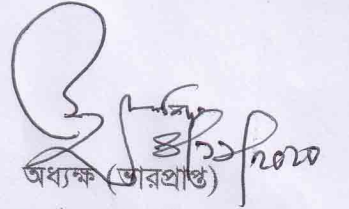 ৪/১১/২০২০
অধ্যক্ষ (ভারপ্রাপ্ত)